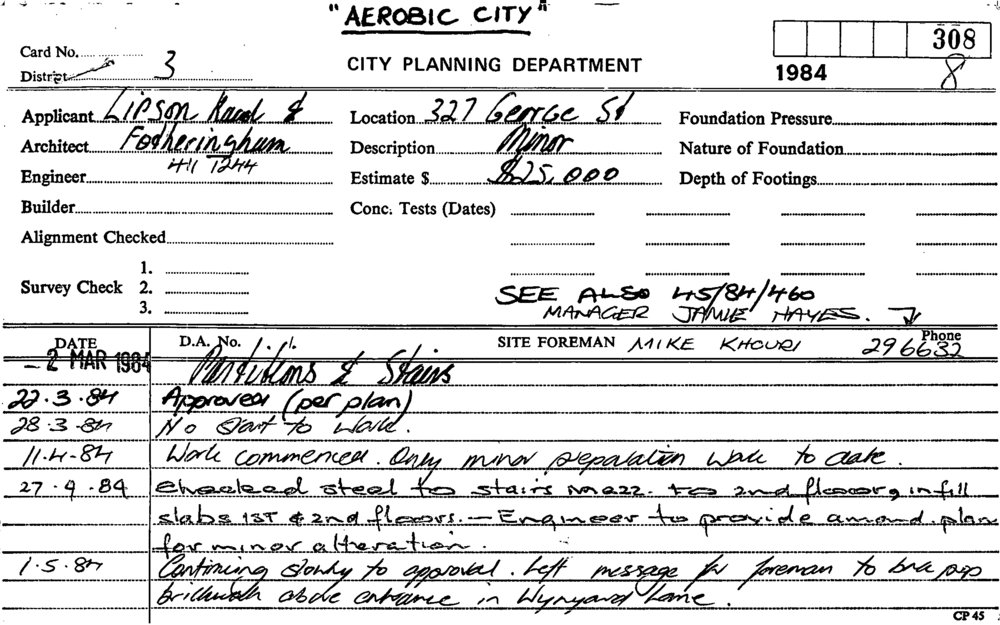 "AEROBIC CITY"
308
Card No.
District 3
CITY PLANNING DEPARTMENT
1984 8
Applicant Lipson Kaad &
Location 327 George St
Foundation Pressure
Architect Fotheringham
Description Minor
Nature of Foundation
411 1244
Engineer
Estimate $ $25,000
Depth of Footings
Builder
Conc. Tests (Dates)
Alignment Checked
1.
Survey Check 2.
3.
SEE ALSO 45/84/460
MANAGER JAMIE HAYES.
DATE D.A. No. SITE FOREMAN MIKE KHOURI Phone 296632
- 2 MAR 1984 Partitions & Stairs
22.3.84 Approved (per plan)
28.3.84 No start to work.
11-4-84 Work commenced. Only minor preparation work to date.
27.4.84 Checked steel to stairs mezz. to 2nd floor, infill
slabs 1ST & 2nd floors. — Engineer to provide amend. plan
for minor alteration.
1.5.84 Continuing slowly to approval. Left message for foreman to prop
brickwork above entrance in Wynyard Lane.
CP 45